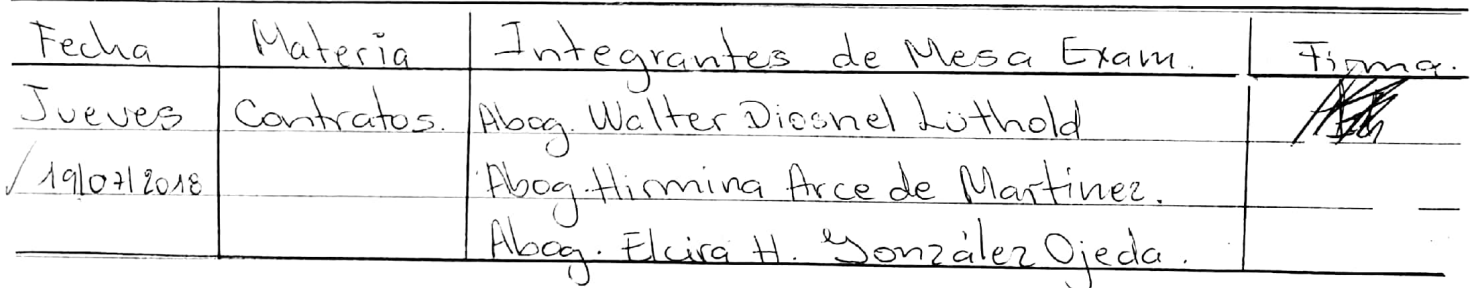 Fecha Materia Integrantes de Mesa Exam. Firma.
Jueves Contratos. Abog. Walter Diosnel Lüthold
19/07/2018 Abog. Hirmina Arce de Martinez.
Abog. Elcira H. González Ojeda.